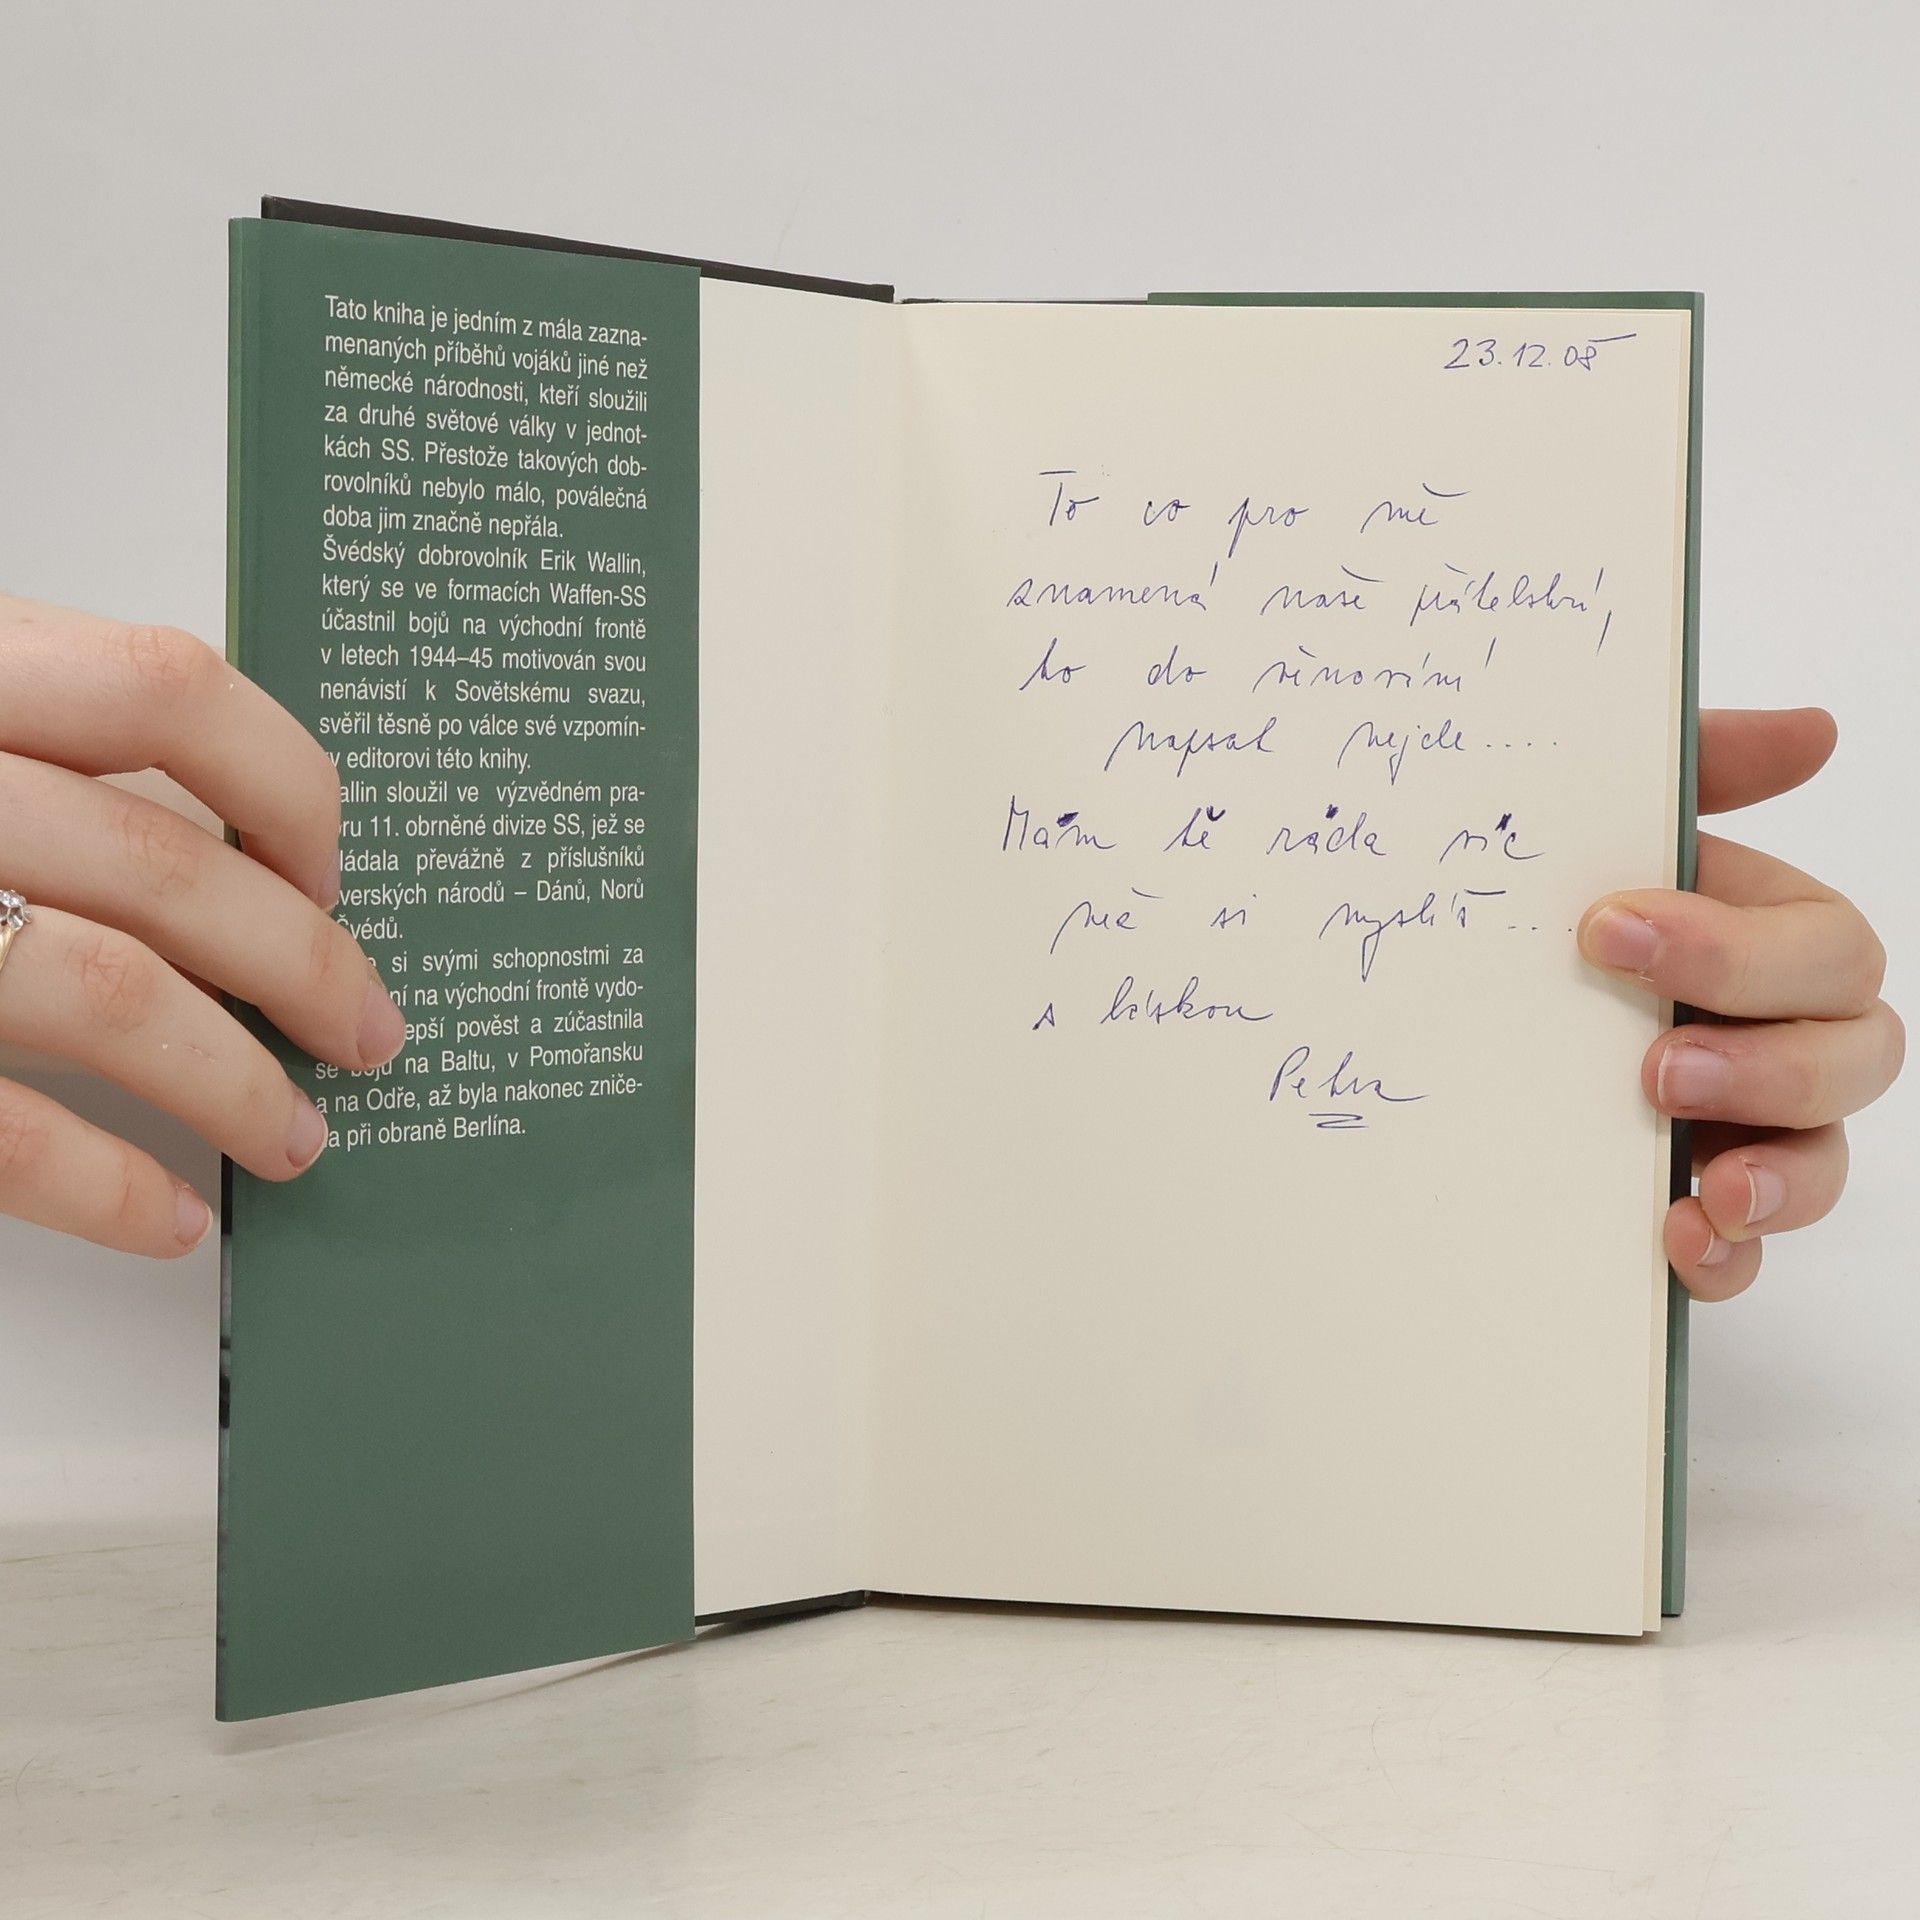 Tato kniha je jedním z mála zazna-
menaných příběhů vojáků jiné než
německé národnosti, kteří sloužili
za druhé světové války v jednot-
kách SS. Přestože takových dob-
rovolníků nebylo málo, poválečná
doba jim značně nepřála.
Švédský dobrovolník Erik Wallin,
který se ve formacích Waffen-SS
účastnil bojů na východní frontě
v letech 1944–45 motivován svou
nenávistí k Sovětskému svazu,
svěřil těsně po válce své vzpomín-
y editorovi této knihy.
allin sloužil ve výzvědném pra-
oru 11. obrněné divize SS, jež se
ládala převážně z příslušníků
verských národů – Dánů, Norů
Švédů.
si svými schopnostmi za
ní na východní frontě vydo-
epší pověst a zúčastnila
se bojů na Baltu, v Pomořansku
a na Odře, až byla nakonec zniče-
a při obraně Berlína.
23.12.05
To co pro mě
znamená naše přátelství,
to do věnování
napsat nejde....
Mám tě ráda víc
než si myslíš ...
s láskou
Petra